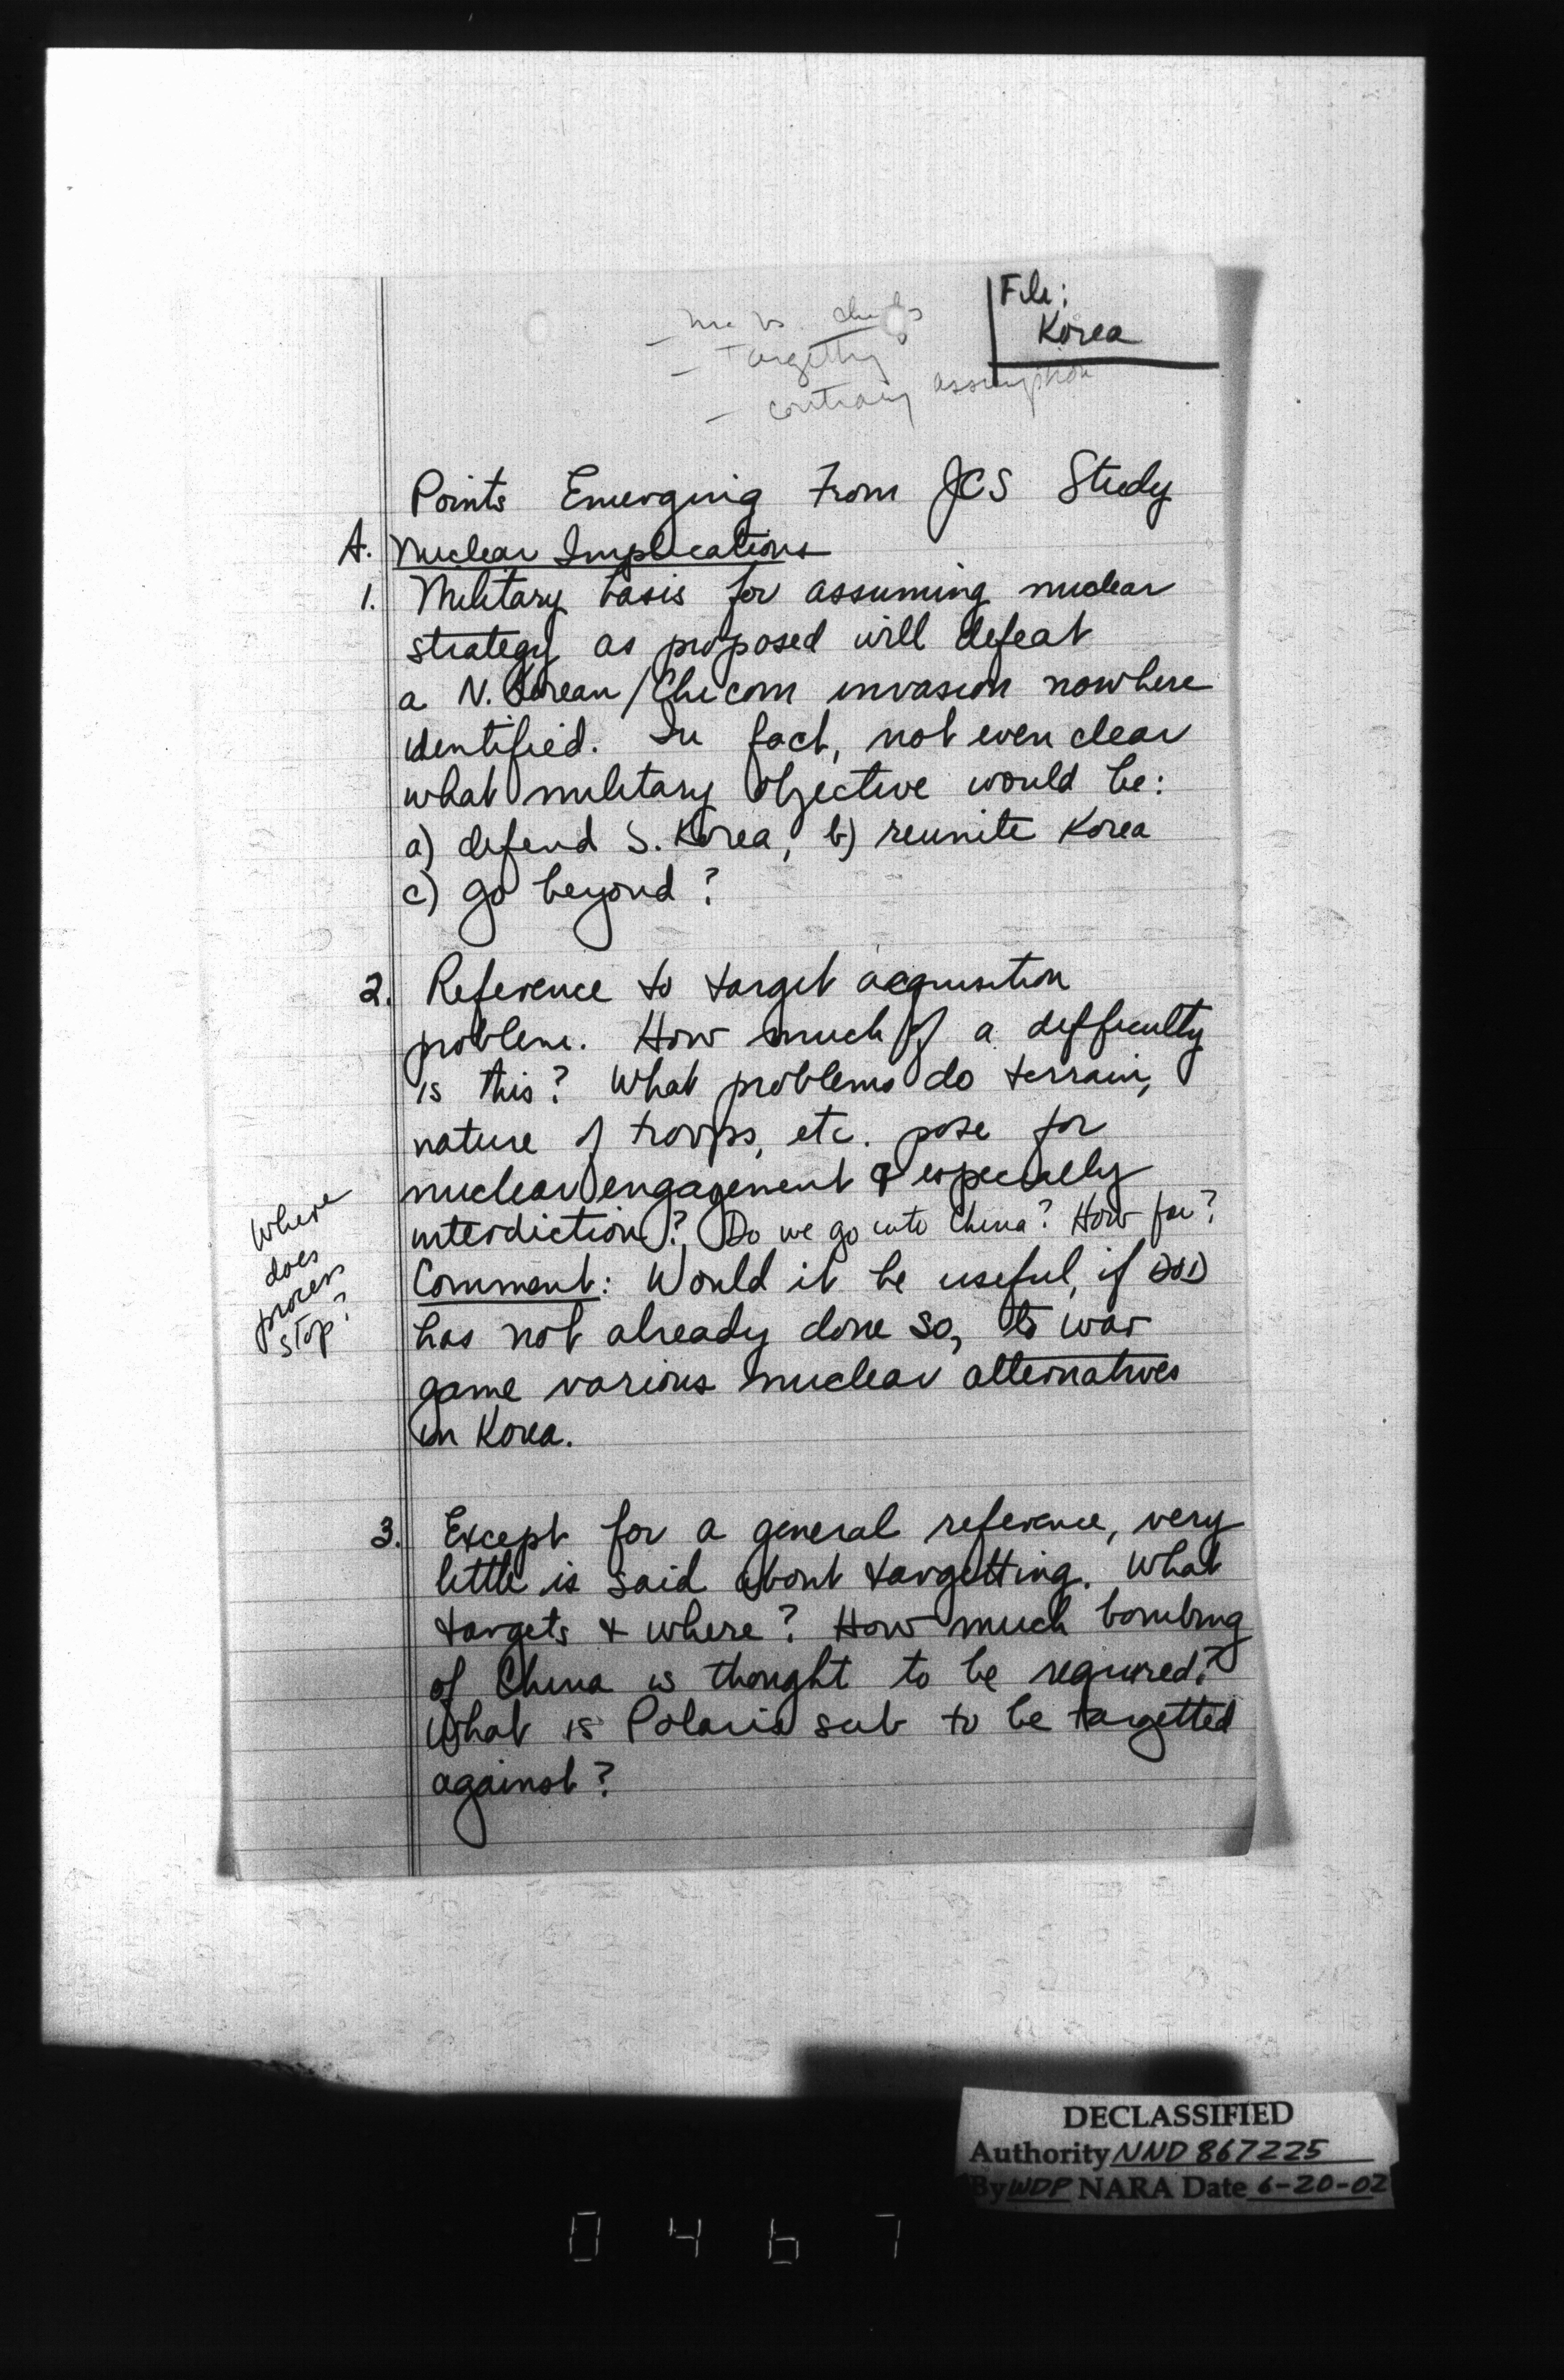 File:
Korea
- vs.
- Targetting
- contrary assumption
Points Emerging From JCS Study
A. Nuclear Implications
1. Military basis for assuming nuclear
strategy as proposed will defeat
a N. Korean/Chicom invasion nowhere
identified. In fact, not even clear
what military objective would be:
a) defend S. Korea, b) reunite Korea
c) go beyond?
2. Reference to target acquisition
problem. How much of a difficulty
is this? What problems do terrain,
nature of troops, etc. pose for
nuclear engagement & especially
interdiction? Do we go into China? How far?
Where
does
process
stop?
Comment: Would it be useful, if DOD
has not already done so, to war
game various nuclear alternatives
in Korea.
3. Except for a general reference, very
little is said about targetting. What
targets & where? How much bombing
of China is thought to be required?
What is Polaris sub to be targetted
against?
DECLASSIFIED
Authority NND 867225
By WDP NARA Date 6-20-02
0467